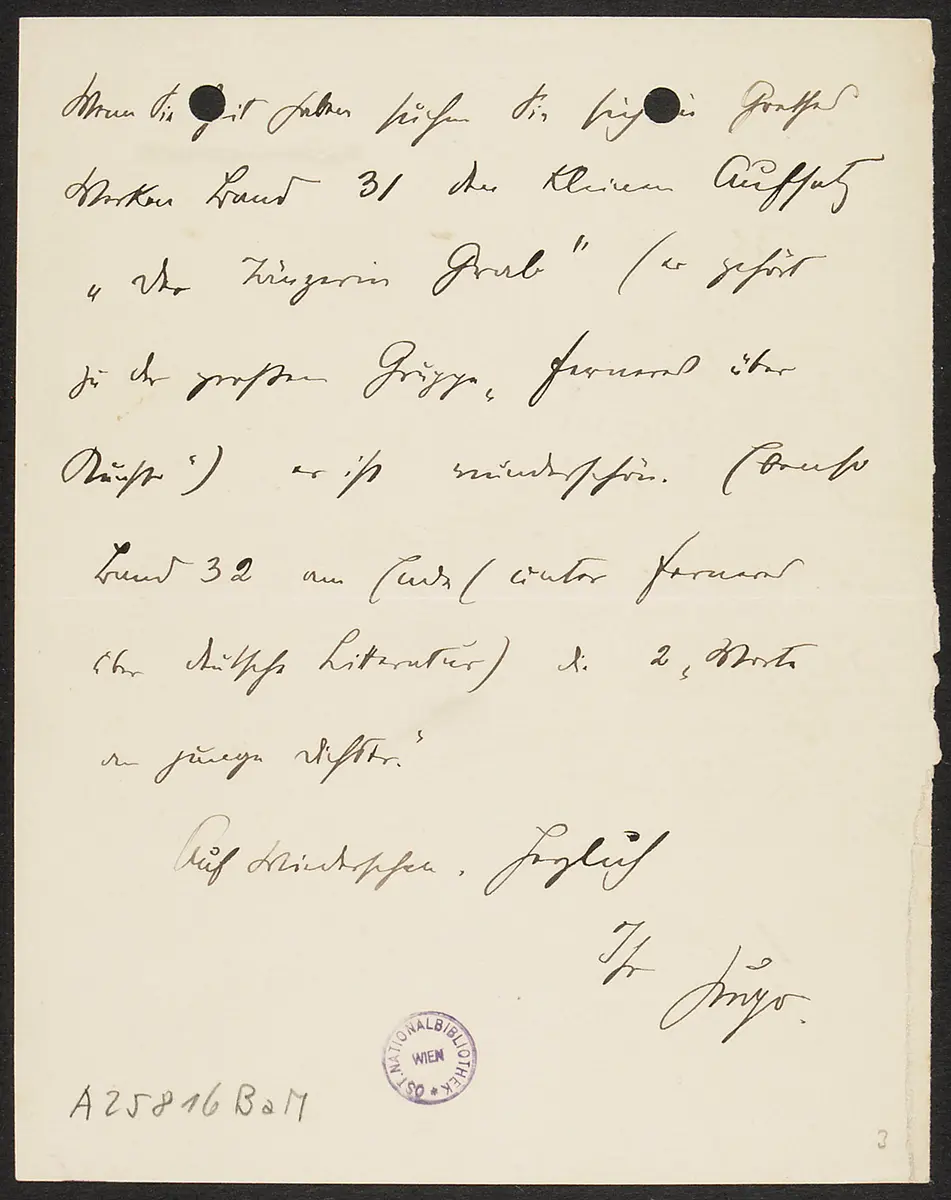 Wenn Sie Zeit haben suchen Sie sich in Goethes
Werken Band 31 den kleinen Aufsatz
„Der Tänzerin Grab" (er gehört
zu der großen Gruppe „Ferneres über
Kunst") er ist wunderschön. Ebenso
Band 32 am Ende (unter Ferneres
über deutsche Litteratur) die 2 „Worte
an junge Dichter."
Auf Wiedersehen. Herzlich
Ihr
Hugo.
ÖST. NATIONALBIBLIOTHEK * WIEN
A 25816 BaM
3